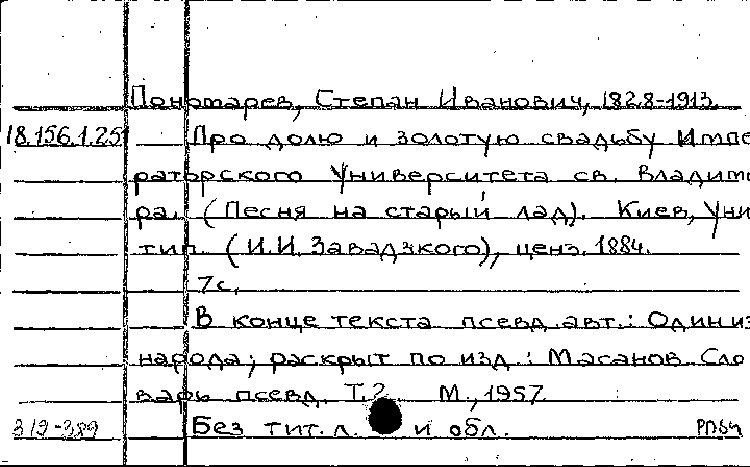 Пономарев, Степан Иванович, 1828-1913.
18.156.1.251 Про долю и золотую свадьбу Импе
раторского Университета св. Владими
ра. (Песня на старый лад). Киев, Уни
тип. (И.И. Завадзкого), ценз. 1884.
7с.
В конце текста псевд. авт.: Один из
народа; раскрыт по изд.: Масанов. Сло
варь псевд. Т.2. М., 1957
319-389 Без тит. л. и обл.